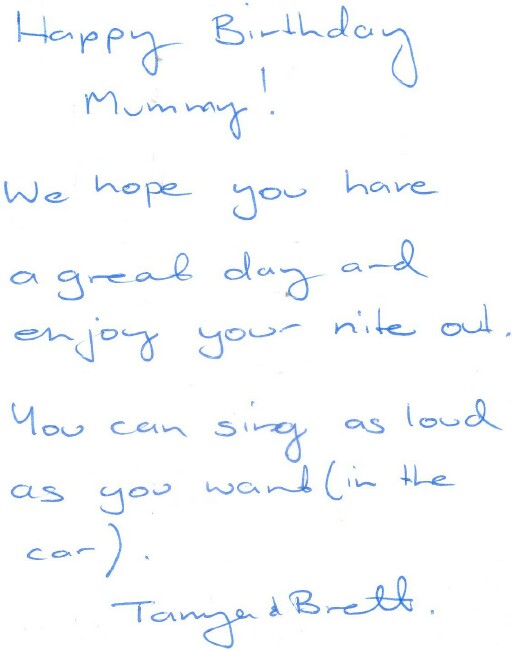 Happy Birthday
Mummy!
We hope you have
a great day and
enjoy your nite out.
You can sing as loud
as you want (in the
car).
Tanya & Brett.